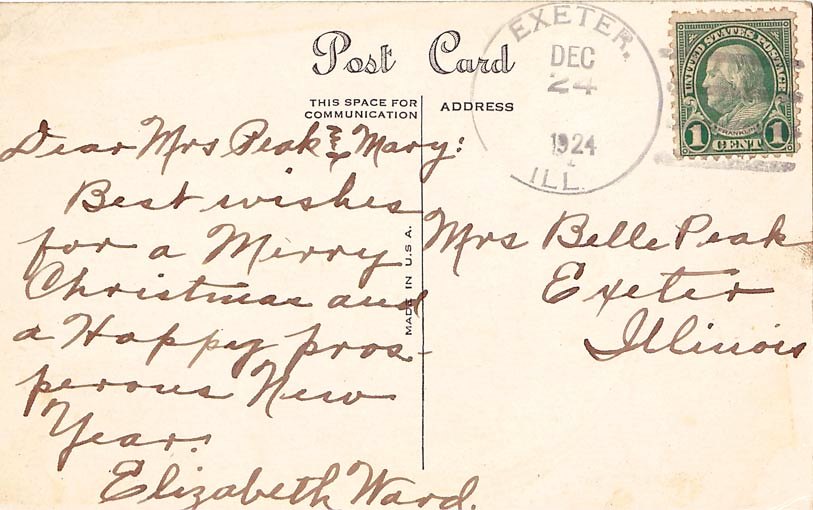 Post Card
THIS SPACE FOR
COMMUNICATION
ADDRESS
EXETER.
DEC
24
1924
ILL.
UNITED STATES POSTAGE
FRANKLIN
1 CENT 1
Dear Mrs Peak & Mary:
Best wishes
for a Merry
Christmas and
a Happy pros-
perous New
Year.
Elizabeth Ward.
MADE IN U.S.A.
Mrs Belle Peak
Exeter
Illinois